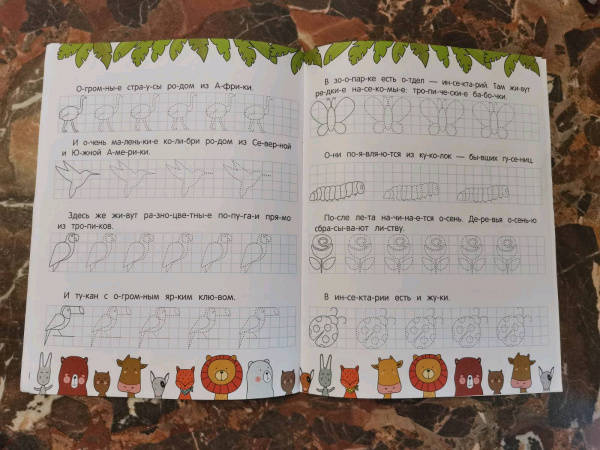 О-гром-ны-е стра-у-сы ро-дом из А-фри-ки.
И о-чень ма-лень-ки-е ко-ли-бри ро-дом из Се-вер-ной
и Ю-жной А-ме-ри-ки.
Здесь же жи-вут ра-зно-цве-тны-е по-пу-га-и пря-мо
из тро-пи-ков.
И ту-кан с о-гром-ным яр-ким клю-вом.
В зо-о-пар-ке есть о-тдел — ин-се-кта-рий. Там жи-вут
ре-дки-е на-се-ко-мы-е: тро-пи-че-ски-е ба-бо-чки.
О-ни по-я-вля-ю-тся из ку-ко-лок — бы-вших гу-се-ниц.
По-сле ле-та на-чи-на-е-тся о-сень. Де-ре-вья о-сень-ю
сбра-сы-ва-ют ли-ству.
В ин-се-кта-рии есть и жу-ки.